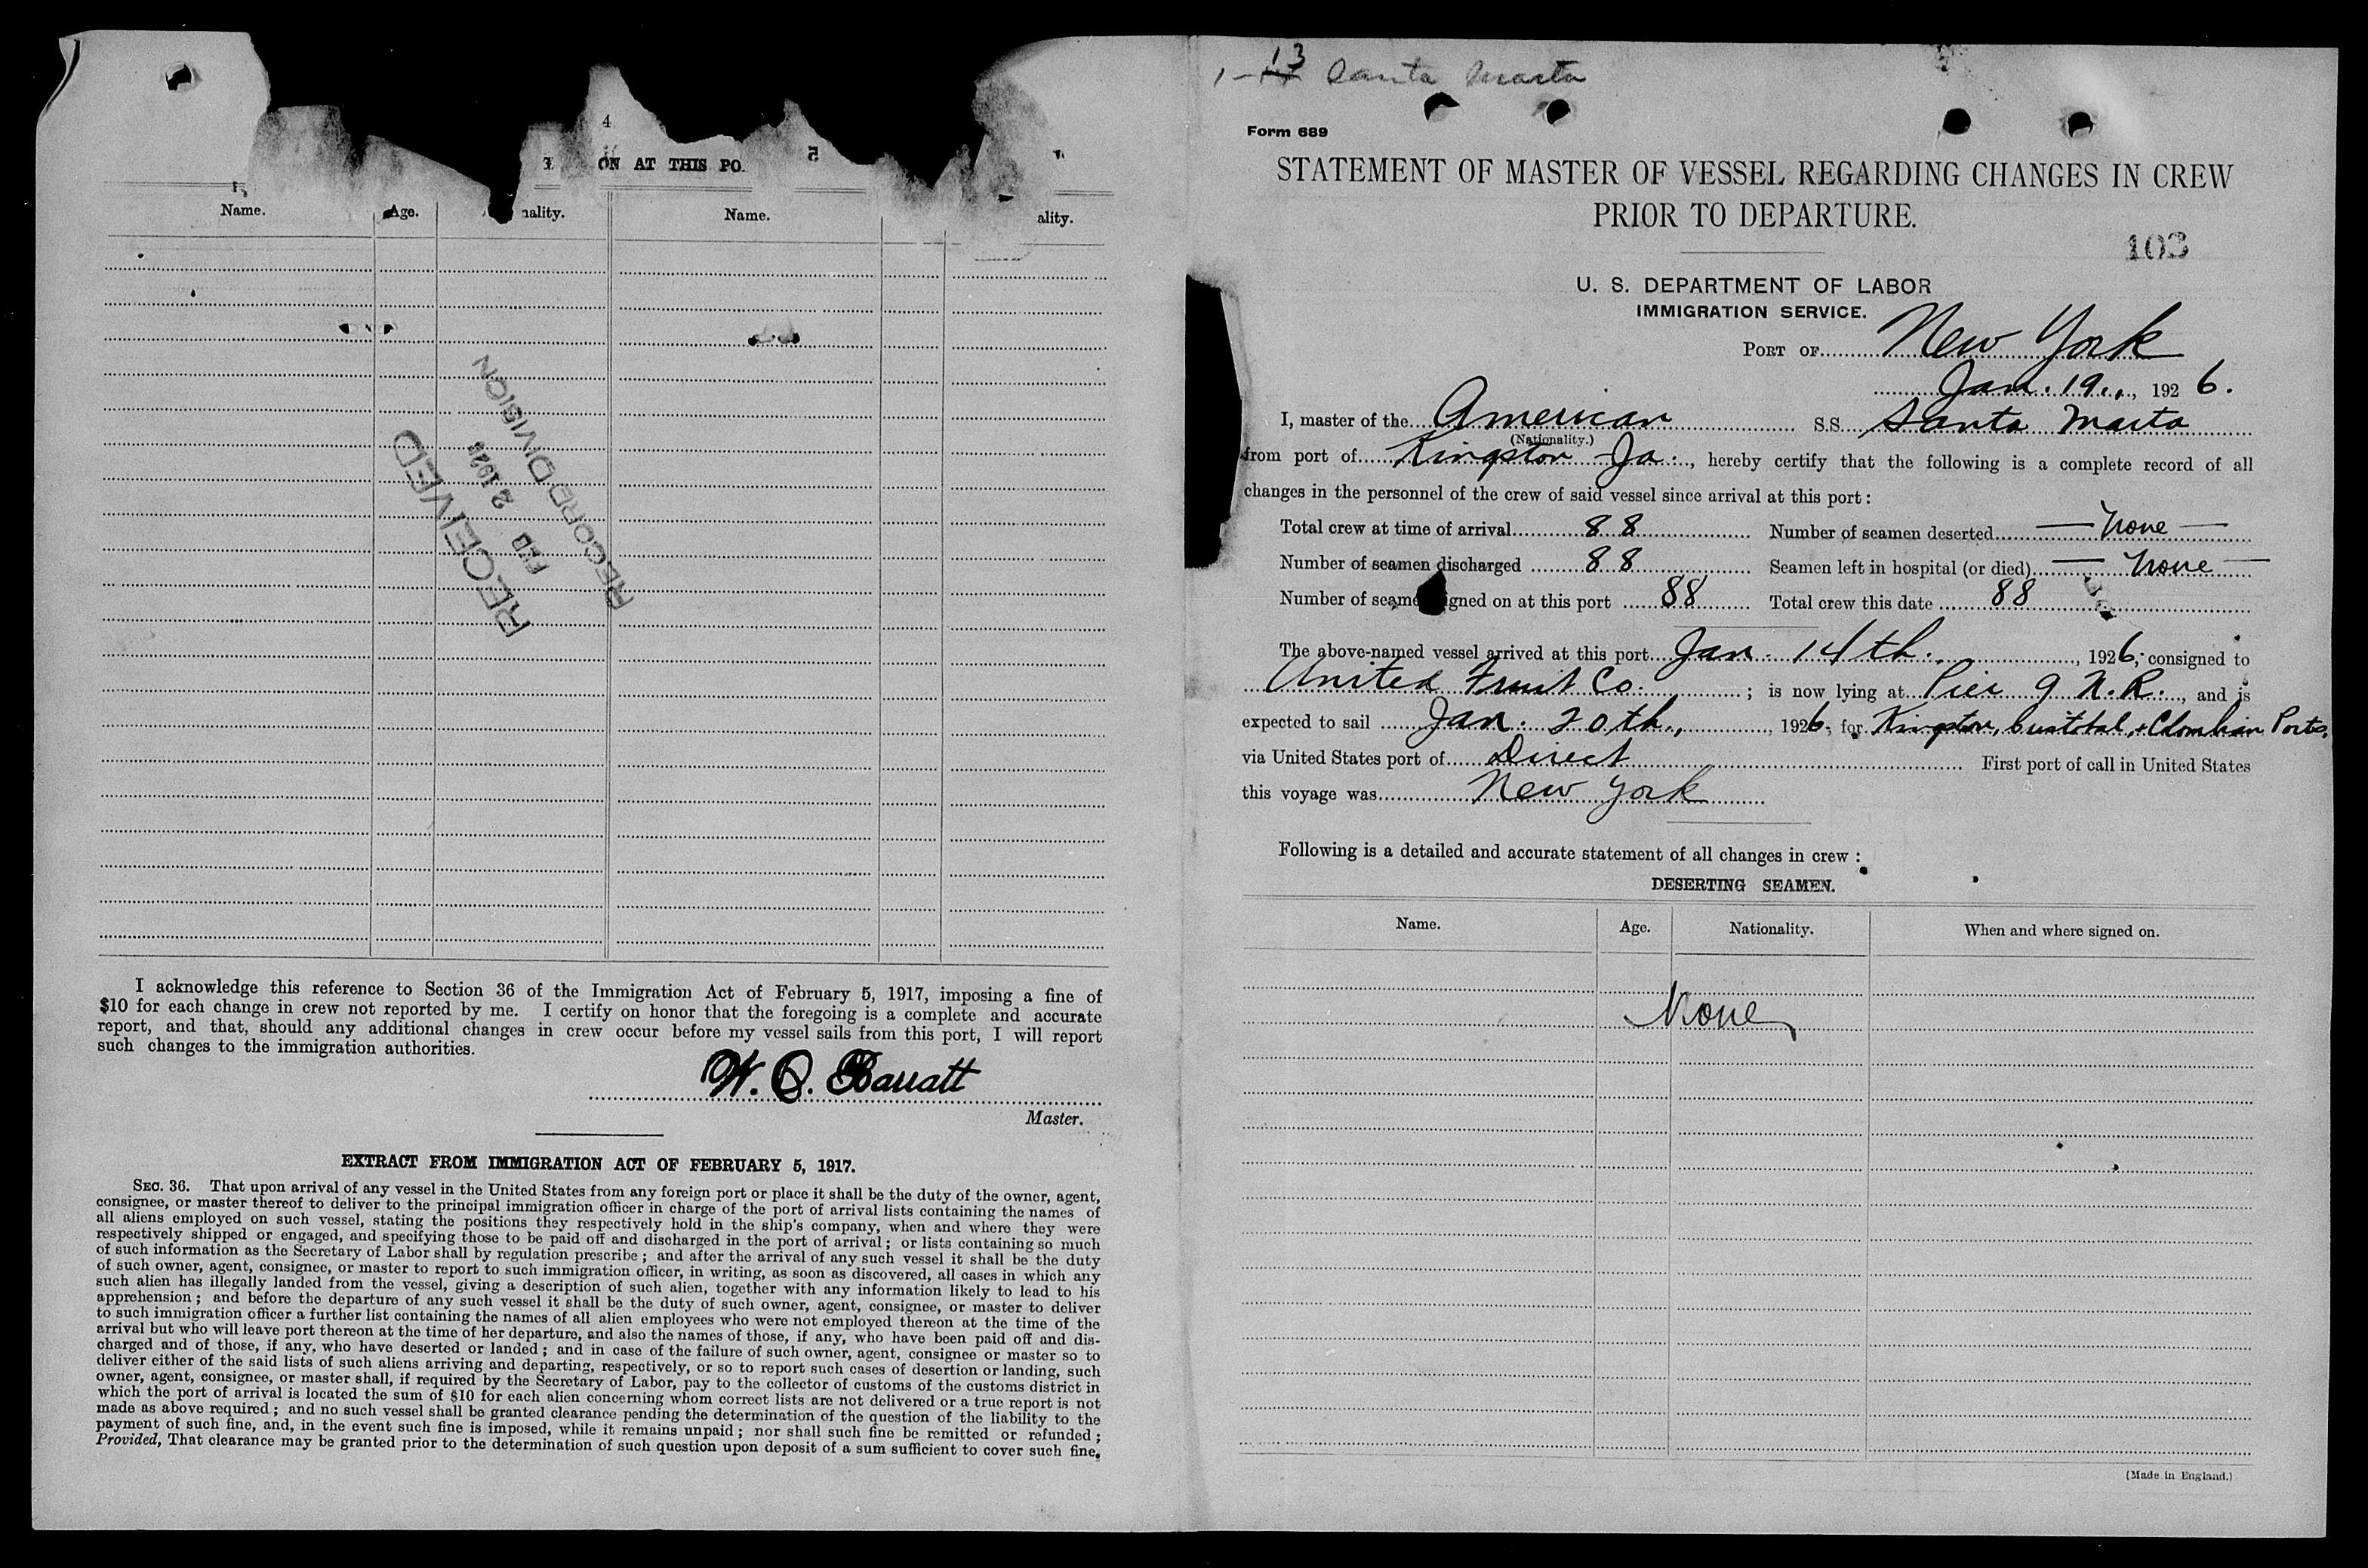 4
ON AT THIS PO
Name. Age. nality. Name. ality.
RECEIVED
FEB 2 192
RECORD DIVISION
I acknowledge this reference to Section 36 of the Immigration Act of February 5, 1917, imposing a fine of
$10 for each change in crew not reported by me. I certify on honor that the foregoing is a complete and accurate
report, and that, should any additional changes in crew occur before my vessel sails from this port, I will report
such changes to the immigration authorities.
W. O. Barratt
Master.
EXTRACT FROM IMMIGRATION ACT OF FEBRUARY 5, 1917.
SEC. 36. That upon arrival of any vessel in the United States from any foreign port or place it shall be the duty of the owner, agent,
consignee, or master thereof to deliver to the principal immigration officer in charge of the port of arrival lists containing the names of
all aliens employed on such vessel, stating the positions they respectively hold in the ship's company, when and where they were
respectively shipped or engaged, and specifying those to be paid off and discharged in the port of arrival; or lists containing so much
of such information as the Secretary of Labor shall by regulation prescribe; and after the arrival of any such vessel it shall be the duty
of such owner, agent, consignee, or master to report to such immigration officer, in writing, as soon as discovered, all cases in which any
such alien has illegally landed from the vessel, giving a description of such alien, together with any information likely to lead to his
apprehension; and before the departure of any such vessel it shall be the duty of such owner, agent, consignee, or master to deliver
to such immigration officer a further list containing the names of all alien employees who were not employed thereon at the time of the
arrival but who will leave port thereon at the time of her departure, and also the names of those, if any, who have been paid off and dis-
charged and of those, if any, who have deserted or landed; and in case of the failure of such owner, agent, consignee or master so to
deliver either of the said lists of such aliens arriving and departing, respectively, or so to report such cases of desertion or landing, such
owner, agent, consignee, or master shall, if required by the Secretary of Labor, pay to the collector of customs of the customs district in
which the port of arrival is located the sum of $10 for each alien concerning whom correct lists are not delivered or a true report is not
made as above required; and no such vessel shall be granted clearance pending the determination of the question of the liability to the
payment of such fine, and, in the event such fine is imposed, while it remains unpaid; nor shall such fine be remitted or refunded;
Provided, That clearance may be granted prior to the determination of such question upon deposit of a sum sufficient to cover such fine.
13
1- Santa Marta
Form 689
STATEMENT OF MASTER OF VESSEL REGARDING CHANGES IN CREW
PRIOR TO DEPARTURE.
103
U. S. DEPARTMENT OF LABOR
IMMIGRATION SERVICE.
PORT OF New York
Jan. 19., 1926.
I, master of the American S.S. Santa Marta
(Nationality.)
from port of Kingston Ja., hereby certify that the following is a complete record of all
changes in the personnel of the crew of said vessel since arrival at this port:
Total crew at time of arrival 88 Number of seamen deserted — None —
Number of seamen discharged 88 Seamen left in hospital (or died) — None —
Number of seame gned on at this port 88 Total crew this date 88
The above-named vessel arrived at this port Jan. 14th., 1926, consigned to
United Fruit Co.; is now lying at Pier 9 N.R., and is
expected to sail Jan. 20th., 1926, for Kingston, Cristobal, + Clombian Ports,
via United States port of Direct First port of call in United States
this voyage was New York
Following is a detailed and accurate statement of all changes in crew:
DESERTING SEAMEN.
Name. Age. Nationality. When and where signed on.
None
(Made in England.)